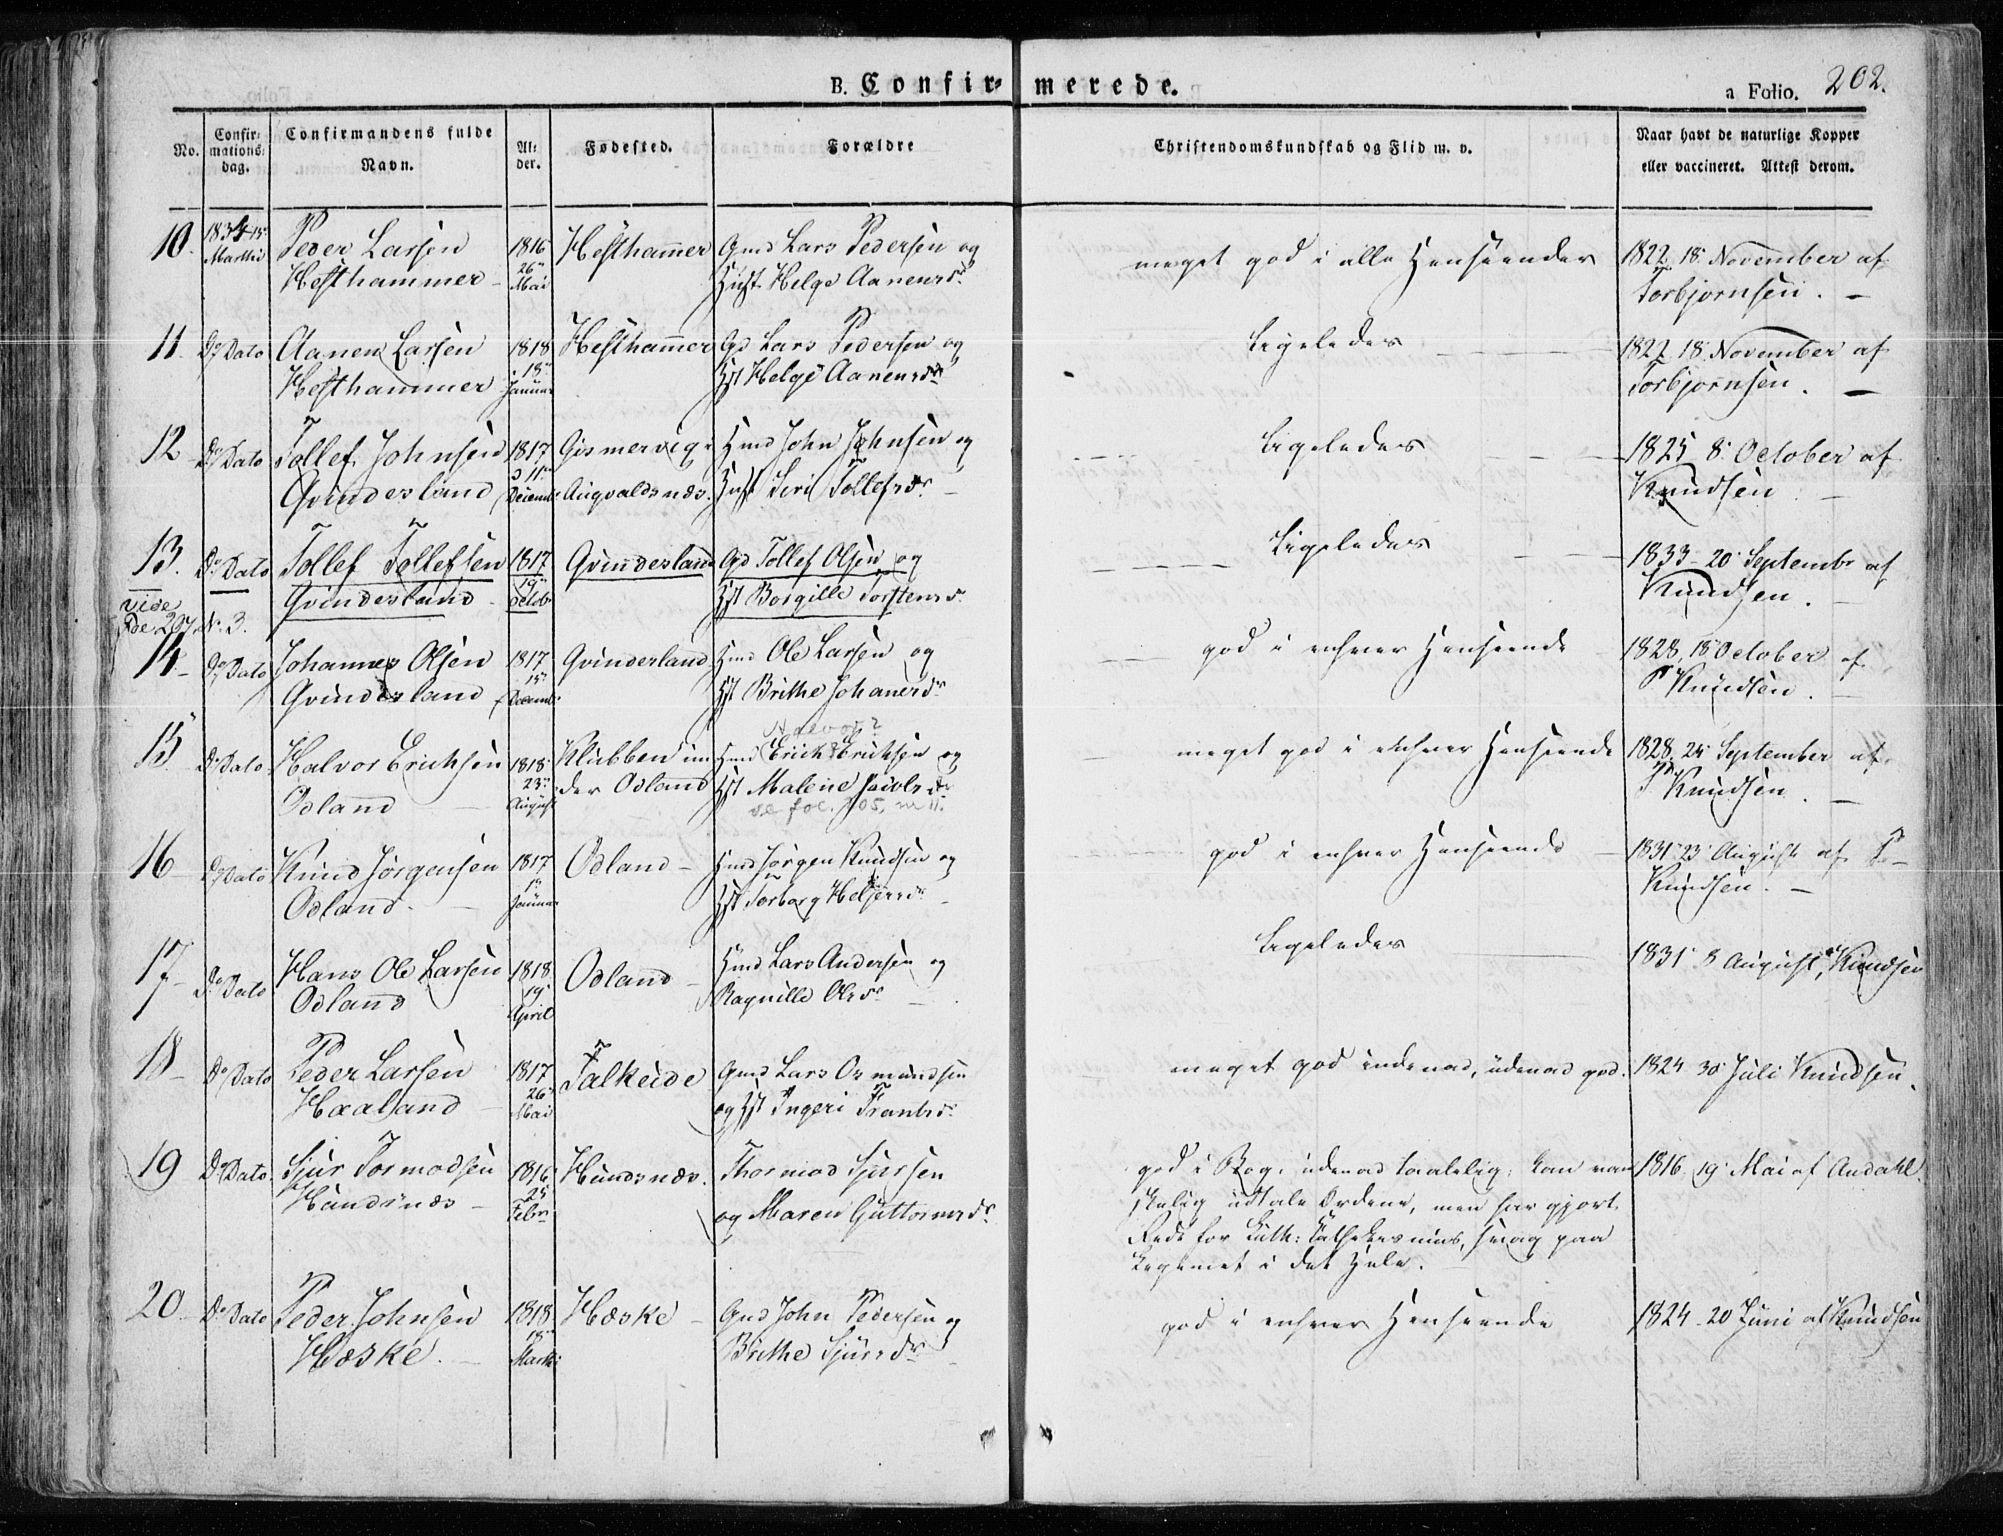 B. Confirmerede.
a Folio. 202.
No.
Confirmations: dag.
Confirmandens fulde Navn.
Alder.
Fødested.
Forældre
Christendomskundskab og Flid m. v.
Naar havt de naturlige Kopper eller vaccineret. Attest derom.
10. 1834 15 Martii Peder Larsen Hesthammer - 1816 26 Mai Hesthammer Gmd Lars Pedersen og Hust Helge Aanensdr meget god i alle Henseender 1822 18 November af Torbjørnsen. -
11 Do Dato Aanen Larsen Hesthammer 1818 18 Januar Hesthammer Gd Lars Pedersen og Hst Helge Aanensdr Ligeledes 1822 18 November af Torbjørnsen. -
12 Do Dato Tollef Johnsen Qvindesland 1817 11 Decemb Gismervig Augvaldsnæs. Hmd John Johnsen og Hust Siri Tollefsdr - Ligeledes 1825 8 October af Knudsen. -
13. Do Dato Tollef Tollefsen Qvindesland 1817 19 Octob Qvindesland Gd Tollef Olsen og Hst Borgille Torstensdr Ligeledes 1833 20 Septembr af Knudsen. -
vide
207, No 3.
14 Do Dato Johannes Olsen Qvindesland 1817 15 Decemb Qvindesland Hmd Ole Larsen og Hst Brithe Johansdr god i enhver Henseende 1828, 18 October af P Knudsen. -
15 Do Dato Halvor Erichsen Odland 1818 23 August Klubben under Odland Hmd Erich Erichsen og Hst Malene Jacobsdr meget god i enhver Henseende 1828 24 September af P Knudsen. -
se fol. 205, nr 11.
16 Do Dato Knud Jørgensen Odland. 1817 1 Januar Odland - Hmd Jørgen Knudsen og Hst Torborg Helgesdr god i enhver Henseende 1831 23 August af P. Knudsen. -
17 Do Dato Hans Ole Larsen Odland 1818 19 April Odland - Hmd Lars Andersen og Ragnille Olsdr Ligeledes 1831 8 August, Knudsen
18 Do Dato Peder Larsen Haaland 1817 26 Mai Falkeide Gmd Lars Osmundsen og Hst Ingeri Frantsdr meget god indenad, udenad god. 1824 30 Juli Knudsen.
19 Do Dato Sjur Tormodsen Hundsnæs 1816 25 Febr Hundsnæs. Thormod Sjursen og Maren Guttormsdr god i Bog, udenad taalelig, kan vanskelig udtale Ordene, men har gjort Rede for Luth: Cathekismus, svag paa Legemet i det Hele. 1816 19 Mai af Andahl.
20 Do Dato Peder Johnsen Hæske. 1818 18 Marti Hæske - Gmd John Pedersen og Brithe Sjursdr god i enhver Henseende 1824 20 Juni af Knudsen